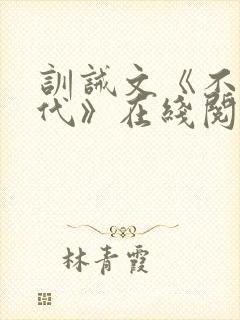 訓誡文《不
代》在綫閱
林青霞